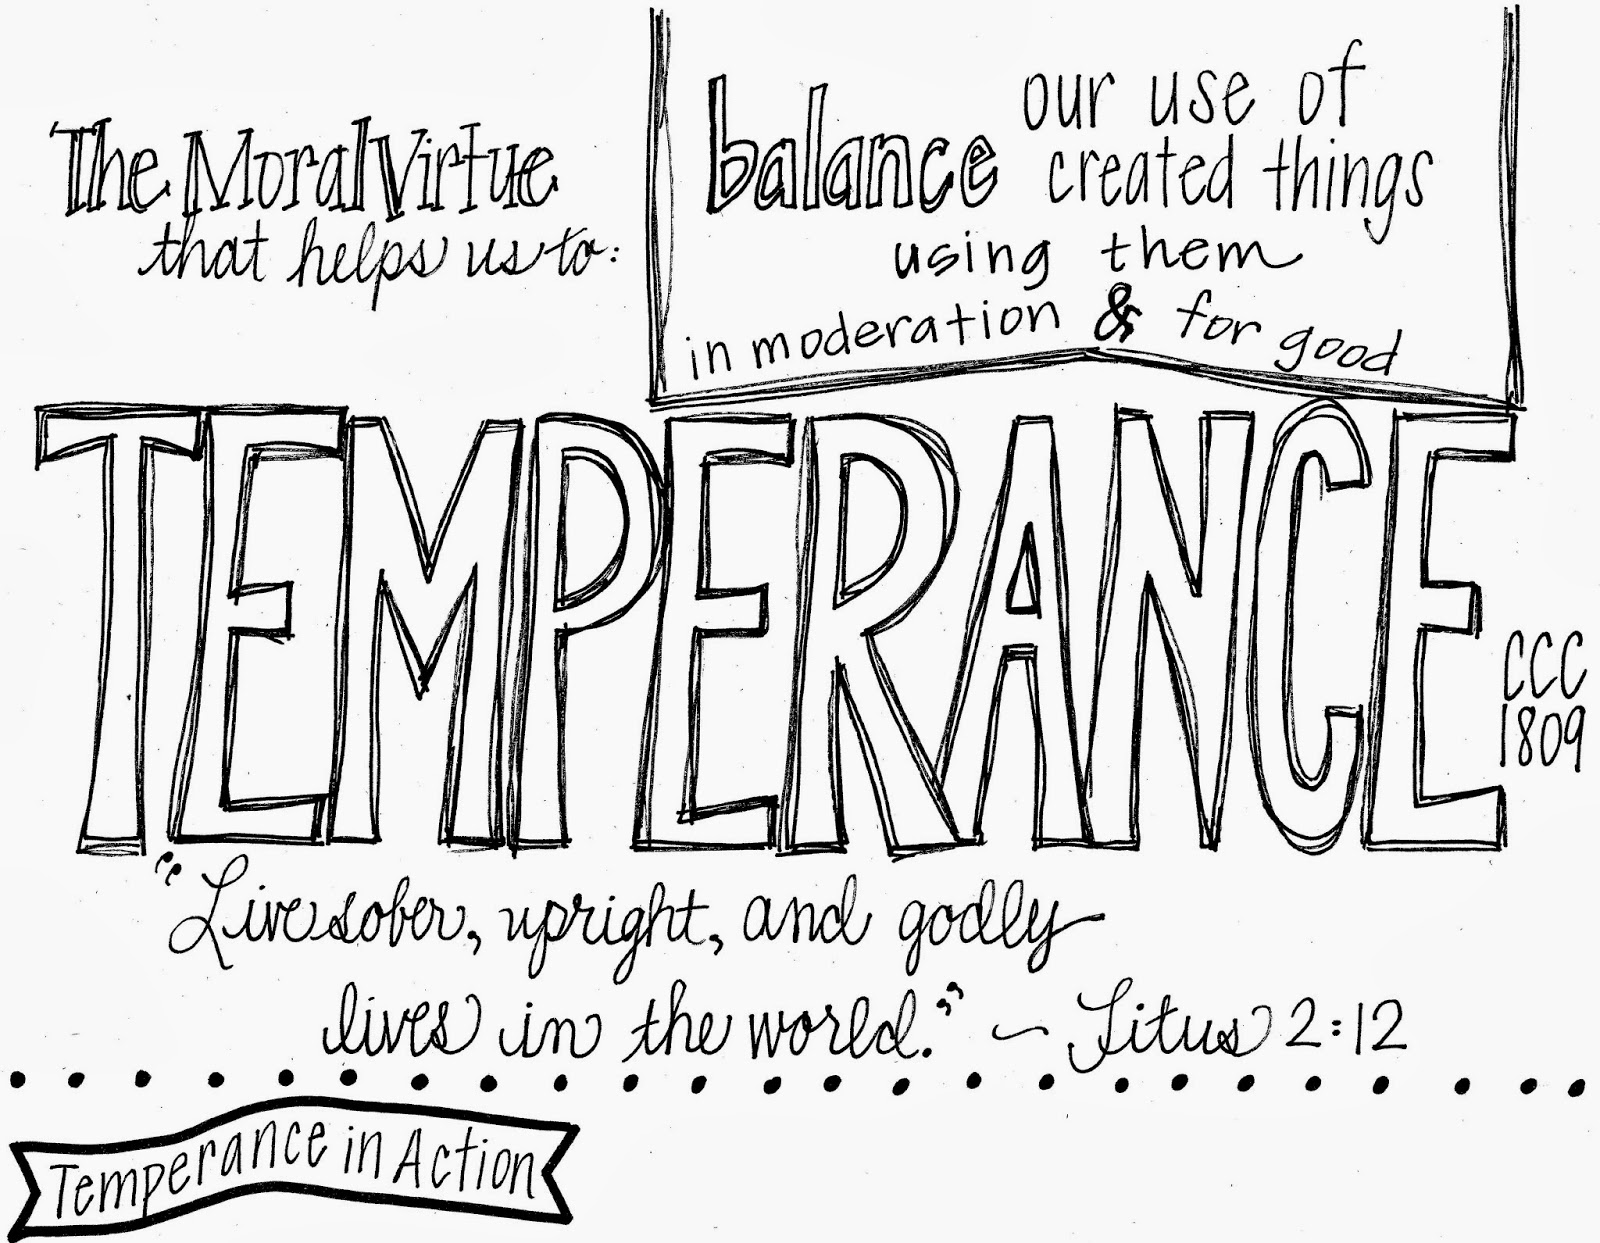 The Moral Virtue
that helps us to:
balance our use of
created things
using them
in moderation & for good
TEMPERANCE
CCC
1809
"Live sober, upright, and godly
lives in the world." ~ Titus 2:12
Temperance in Action